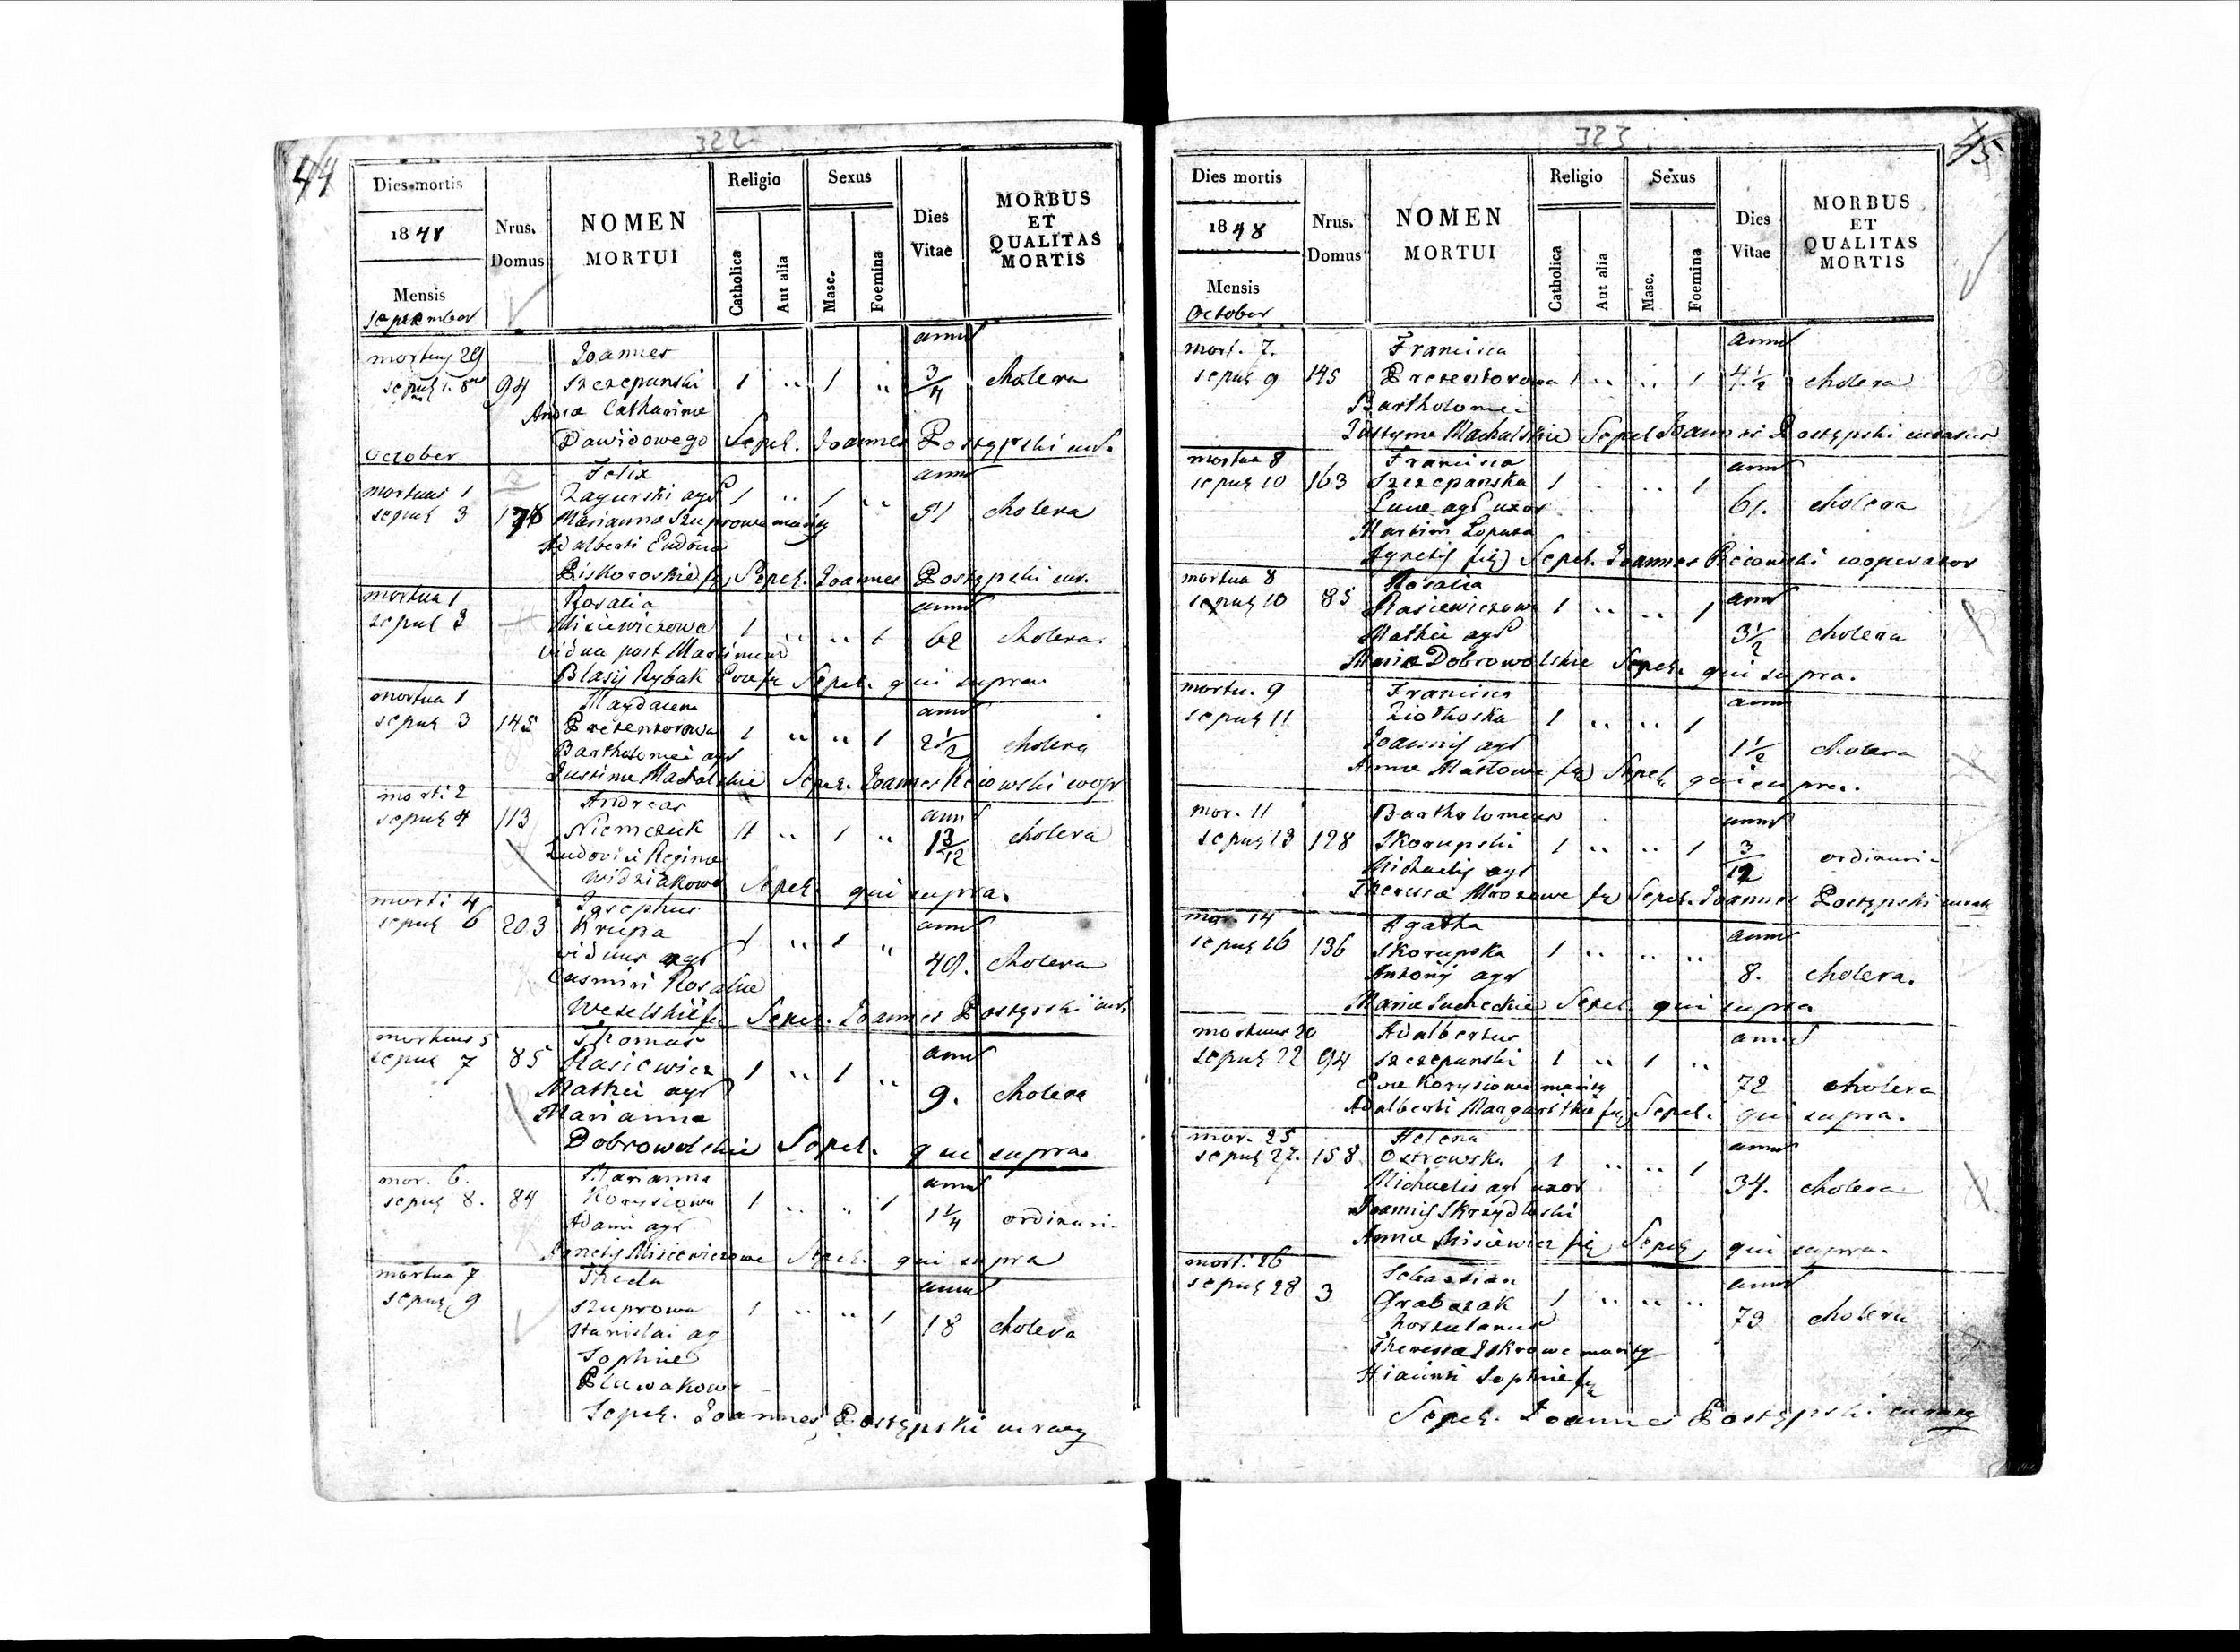 322
44
Dies mortis
1848
Mensis
September
Nrus.
Domus
NOMEN
MORTUI
Religio
Catholica
Aut alia
Sexus
Masc.
Foemina
Dies
Vitae
MORBUS
ET
QUALITAS
MORTIS
mortuus 29 Joannes anni
sepult. 1. 94 Szczepanski 1 " 1 " 3/4 cholera
Catharinae
Dawidowego Sepel. Joannes Postępski cur.
October
Felix anni
mortuus 1 Zagurski agr 1 " 1 " 51 cholera
sepult 3 Marianna Szuprowa
Adalberti
Piskoroskie Sepel. Joannes Postępski cur.
mortua 1 Rosalia anni
sepul 3 Misiewiczowa 1 " " 1 62 cholera
vidua post Martinum
Blasij Rybak Evae Sepel. qui supra
mortua 1 Magdalena anni
sepult 3 145 Prezentorowa 1 " " 1 2 1/2 cholera
Bartholomei agr
Justinae Machalskie Sepel. Joannes
morti 2 Andreas anni
sepult 4 113 Niemczuk " 1 " 1 3/12 cholera
Ludovici Reginae
Sepel. qui supra.
morti 4 Josephus anni
sepult 6 203 Krupa 1 " 1 " cholera
viduus agr
Casimiri Rosaliae
Weselskie Sepel. Joannes Postępski cur.
mortuus 5 Thomas anni
sepult 7 85 Rasiewicz 1 " 1 " 9. cholera
Mathei agr
Mariannae
Dobrowolskie Sepel. qui supra
mor. 6. Marianna anni
sepult 8. 84 Korysiowa 1 " " 1 1 1/4 ordinari
Adami agr
Agnetis Misiewiczowe Sepel. qui supra
mortua 7 Thecla anni
sepult 9 Szuprowa 1 " " 1 18 cholera
Stanislai ag
Sophiae
Pluwakowe
Sepel. Joannes Postępski
323
45
Dies mortis
1848
Mensis
October
Nrus.
Domus
NOMEN
MORTUI
Religio
Catholica
Aut alia
Sexus
Masc.
Foemina
Dies
Vitae
MORBUS
ET
QUALITAS
MORTIS
mort. 7. Francisca anni
sepult 9 145 Prezentorowa 1 " " 1 4 1/2 cholera
Bartholomei
Justynae Machalskie Sepel Joannes Postępski
mortua 8 Francisca anni
sepult 10 163 Szczepanska 1 " " 1 61. cholera
Lucae agr uxor
Martini
Agnetis Sepel. Joannes cooperator
mortua 8 Rosalia anni
sepult 10 85 Rasiewiczowa 1 " " 1 3 1/2 cholera
Mathei agr
Dobrowolskie Sepel. qui supra.
mortu. 9 Francisca anni
sepult 11 1 " " 1 1 1/2 cholera
Joannis agr
Annae Sepel. qui supra.
mor. 11 Bartholomeus anni
sepult 13 128 Skorupski 1 " " 1 3/12 ordinari
Michaelis agr
Theressae Mrozowe Sepel. Joannes Postępski
mor. 14 Agatha anni
sepult 16 136 Skorupska 1 " " " 8. cholera.
Antonij agr
Mariae Sucheckie Sepel. qui supra
mortuus 20 Adalbertus anni
sepult 22 94 Szczepanski 1 " 1 " 72 cholera
Evae Korysiowe
Adalberti Margarithae Sepel. qui supra.
mor. 25 Helena anni
sepult 27. 158 Ostrowska 1 " " 1 34. cholera
Michaelis agr uxor
Joannis Skrzydloski
Annae Misiewicz Sepel qui supra.
mort. 26 Sebastian anni
sepult 28 3 Grabczak 1 " " " 73 cholera
hortulanus
Theressae Iskrowe
Sophiae
Sepel. Joannes Postępski